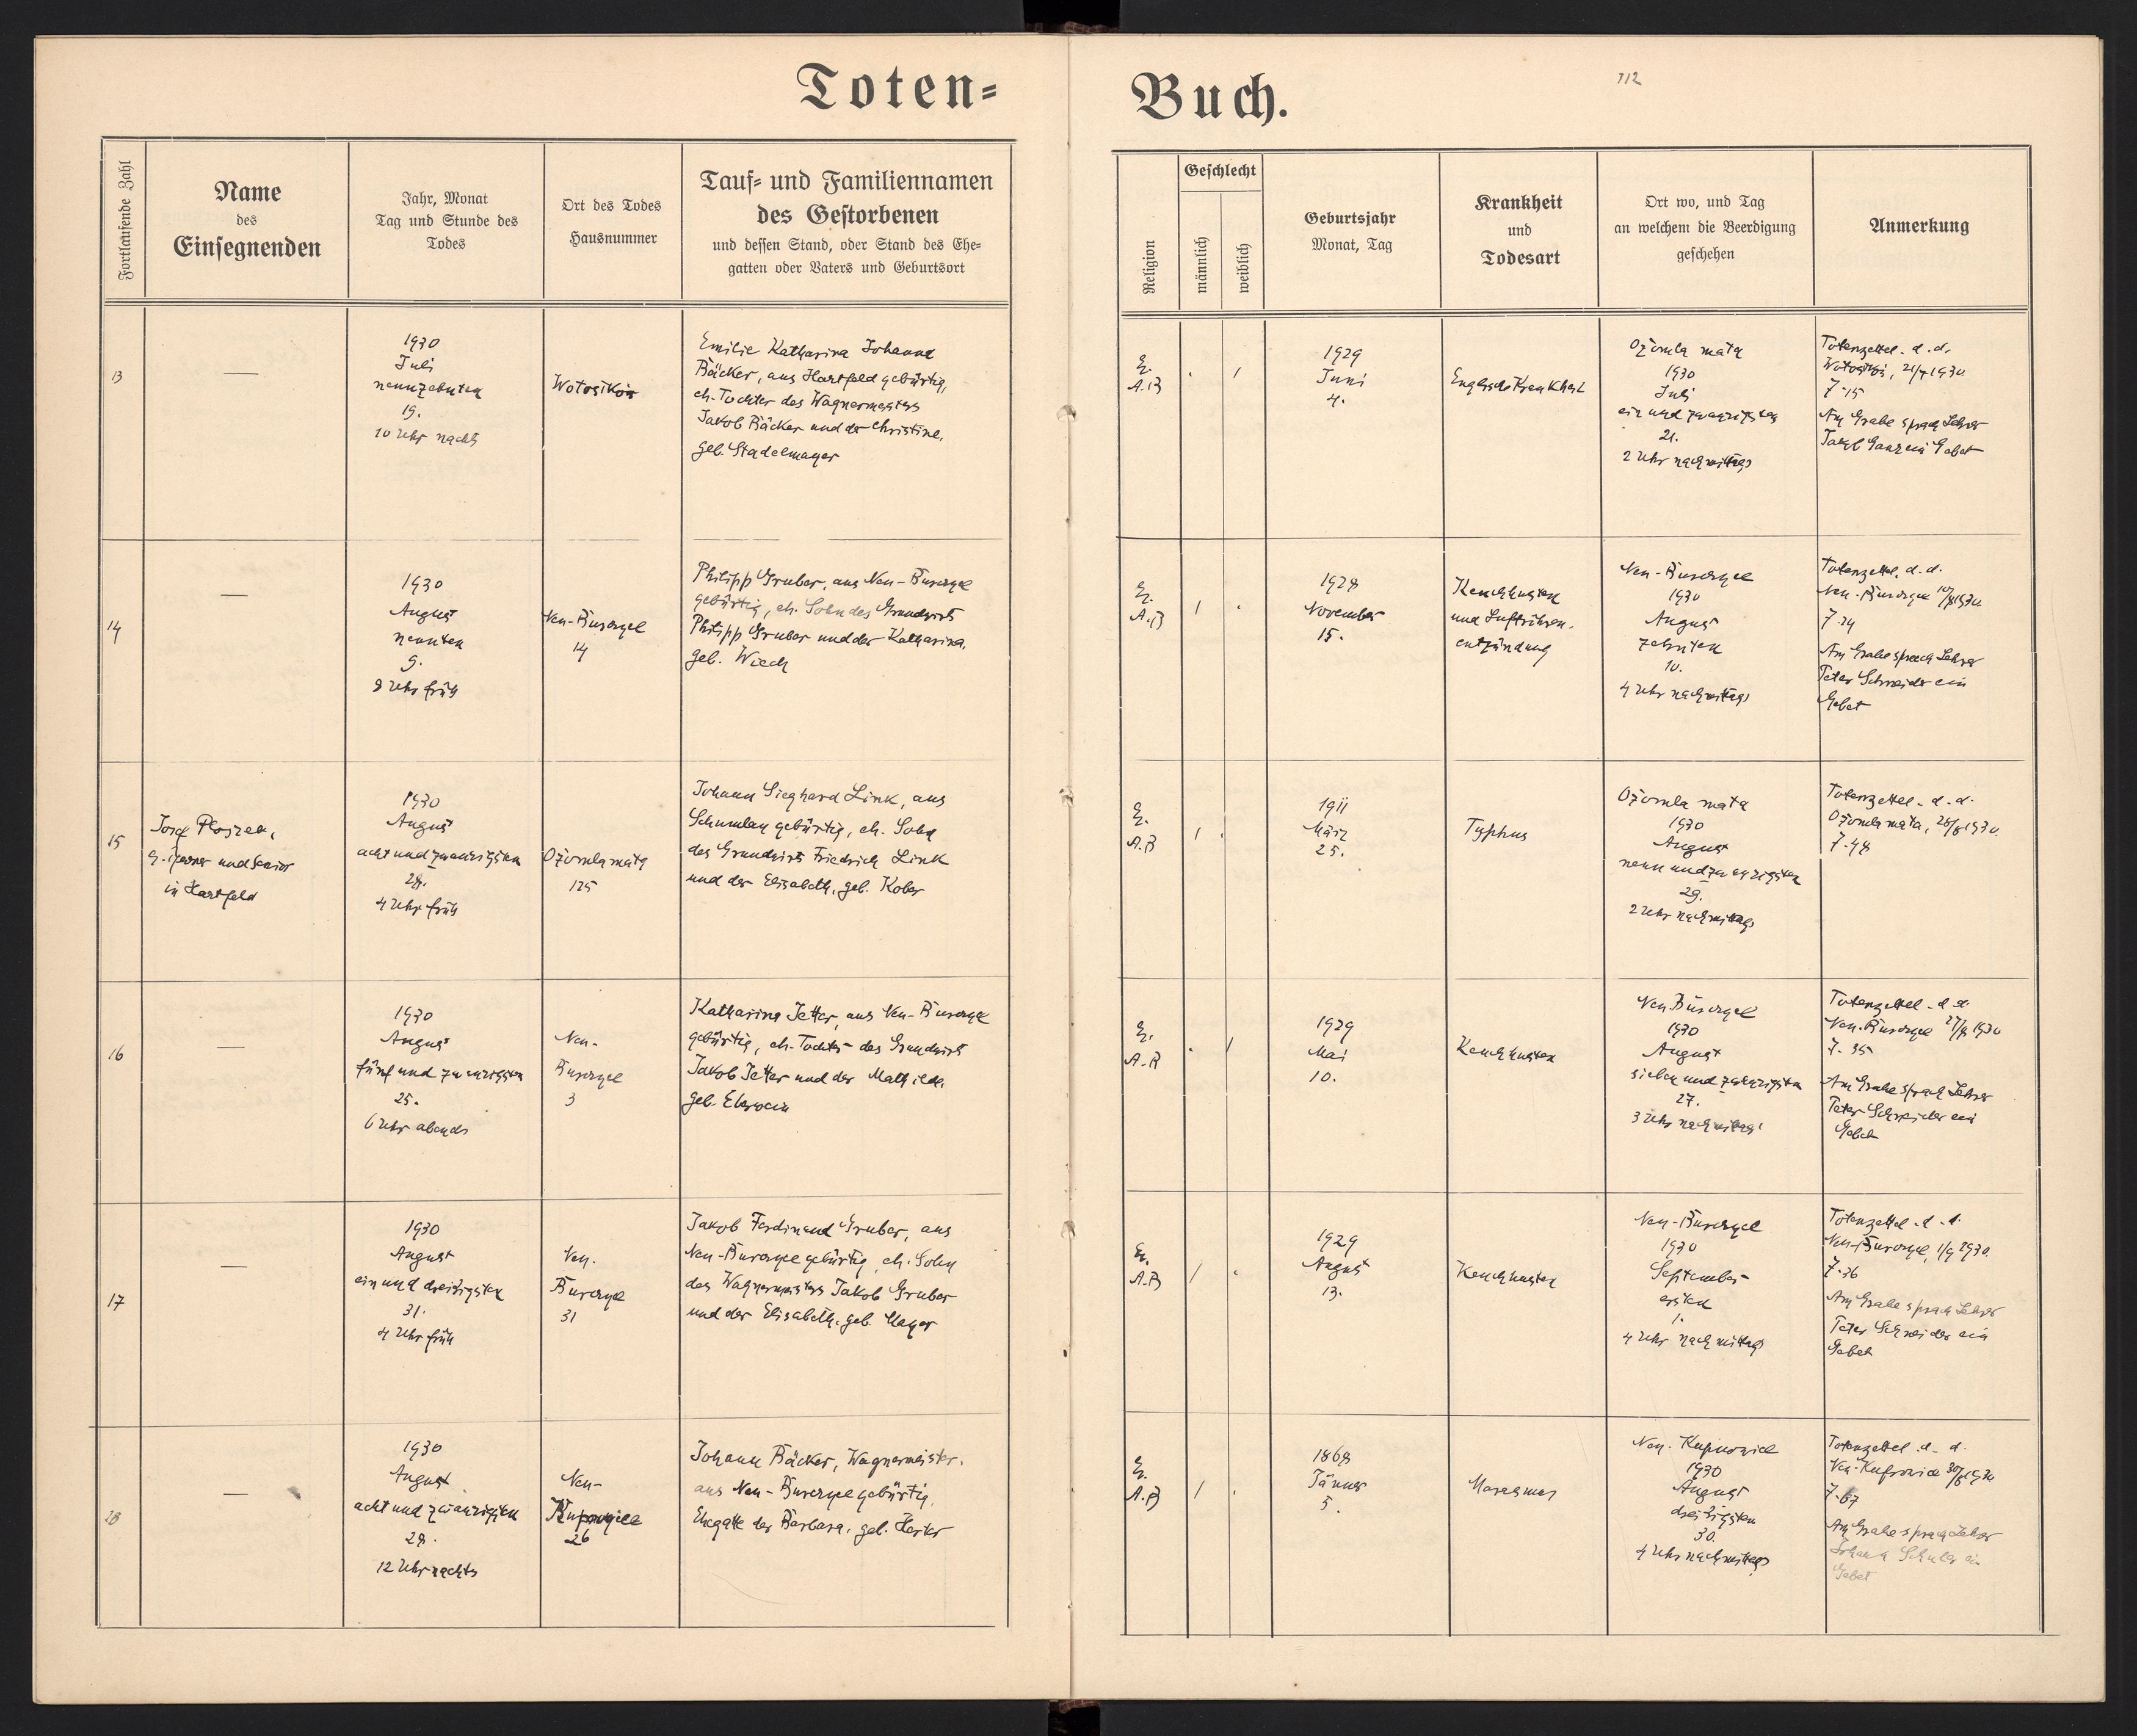 Toten=
Fortlaufende Zahl
Name
des
Einsegnenden
Jahr, Monat
Tag und Stunde des
Todes
Ort des Todes
Hausnummer
Tauf= und Familiennamen
des Gestorbenen
und dessen Stand, oder Stand des Ehe=
gatten oder Vaters und Geburtsort
13
—
1930
Juli
neunzehnten
19.
10 Uhr nachts
Emilie Katharina Johanna
Bäcker, aus Hartfeld gebürtig,
eh. Tochter des Wagnermeisters
Jakob Bäcker und der Christine,
geb. Stadelmayer
14
—
1930
August
neunten
9.
8 Uhr früh
Neu-Burczyce
14
Philipp Gruber, aus Neu-Burczyce
gebürtig, eh. Sohn des Grundwirts
Philipp Gruber und der Katharina,
geb. Wiech
15
Josef Ploszek,
in Hartfeld
1930
August
acht und zwanzigsten
28.
4 Uhr früh
Ożomla mała
125
Johann Sieghard Link, aus
gebürtig, eh. Sohn
des Grundwirts Friedrich Link
und der Elisabeth, geb. Kober
16
—
1930
August
fünf und zwanzigsten
25.
6 Uhr abends
Neu-
Burczyce
3
Katharina Jetter, aus Neu-Burczyce
gebürtig, eh. Tochter des Grundwirts
Jakob Jetter und der Mathilde,
geb. Eberwein
17
—
1930
August
ein und dreißigsten
31.
4 Uhr früh
Neu-
Burczyce
31
Jakob Ferdinand Gruber, aus
Neu-Burczyce gebürtig, eh. Sohn
des Wagnermeisters Jakob Gruber
und der Elisabeth, geb. Mayer
—
1930
August
acht und zwanzigsten
28.
12 Uhr nachts
Neu-
Kupnowice
26
Johann Bäcker, Wagnermeister,
aus Neu-Burczyce gebürtig,
Ehegatte der Barbara, geb.
Buch.
112
Religion
Geschlecht
männlich
weiblich
Geburtsjahr
Monat, Tag
Krankheit
und
Todesart
Ort wo, und Tag
an welchem die Beerdigung
geschehen
Anmerkung
E.
A.B
.
1
1929
Juni
4.
Englische Krankheit
Ożomla mała
1930
Juli
ein und zwanzigsten
21.
2 Uhr nachmittags
Totenzettel. d. d.
Z-15
Am Grabe sprach Lehrer
Jakob Ganz ein Gebet
E.
A.B
1
.
1928
November
15.
Keuchhusten
und Luftröhren-
entzündung
Neu-Burczyce
1930
August
zehnten
10.
4 Uhr nachmittags
Totenzettel. d. d.
Neu-Burczyce 10/8 1930.
Z-34
Am Grabe sprach Lehrer
Peter Schneider ein
Gebet
E.
A.B
1
.
1911
März
25.
Typhus
Ożomla mała
1930
August
neun und zwanzigsten
29.
2 Uhr nachmittags
Totenzettel. d. d.
Ożomla mała, 28/8 1930.
Z-48
E.
A.B
.
1
1929
Mai
10.
Keuchhusten
Neu Burczyce
1930
August
sieben und zwanzigsten
27.
3 Uhr nachmittags
Totenzettel. d. d.
Neu-Burczyce 27/8 1930
Z-35
Am Grabe sprach Lehrer
Peter Schneider ein
Gebet
E.
A.B
1
.
1929
August
13.
Keuchhusten
Neu-Burczyce
1930
September
ersten
1.
4 Uhr nachmittags
Totenzettel. d. d.
Neu-Burczyce, 1/9 1930.
Z-36
Am Grabe sprach Lehrer
Peter Schneider ein
Gebet
E.
A.B
1
.
1868
Jänner
5.
Marasmus
Neu-Kupnowice
1930
August
dreißigsten
30.
4 Uhr nachmittags
Totenzettel. d. d.
Neu-Kupnowice 30/8 1930
Z-67
Am Grabe sprach Lehrer
Johann Schuler ein
Gebet